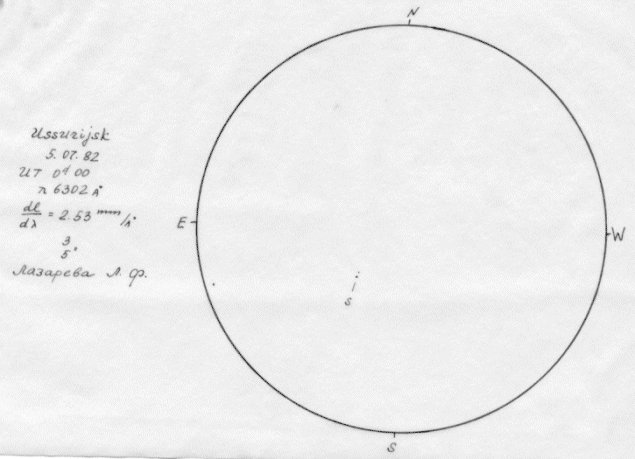 N
Ussurijsk
5.07.82
UT 0ʰ 00
λ 6302 Å
dl/dλ = 2.53 mm/Å
3
5"
Лазарева Л. Ф.
E
W
s
S